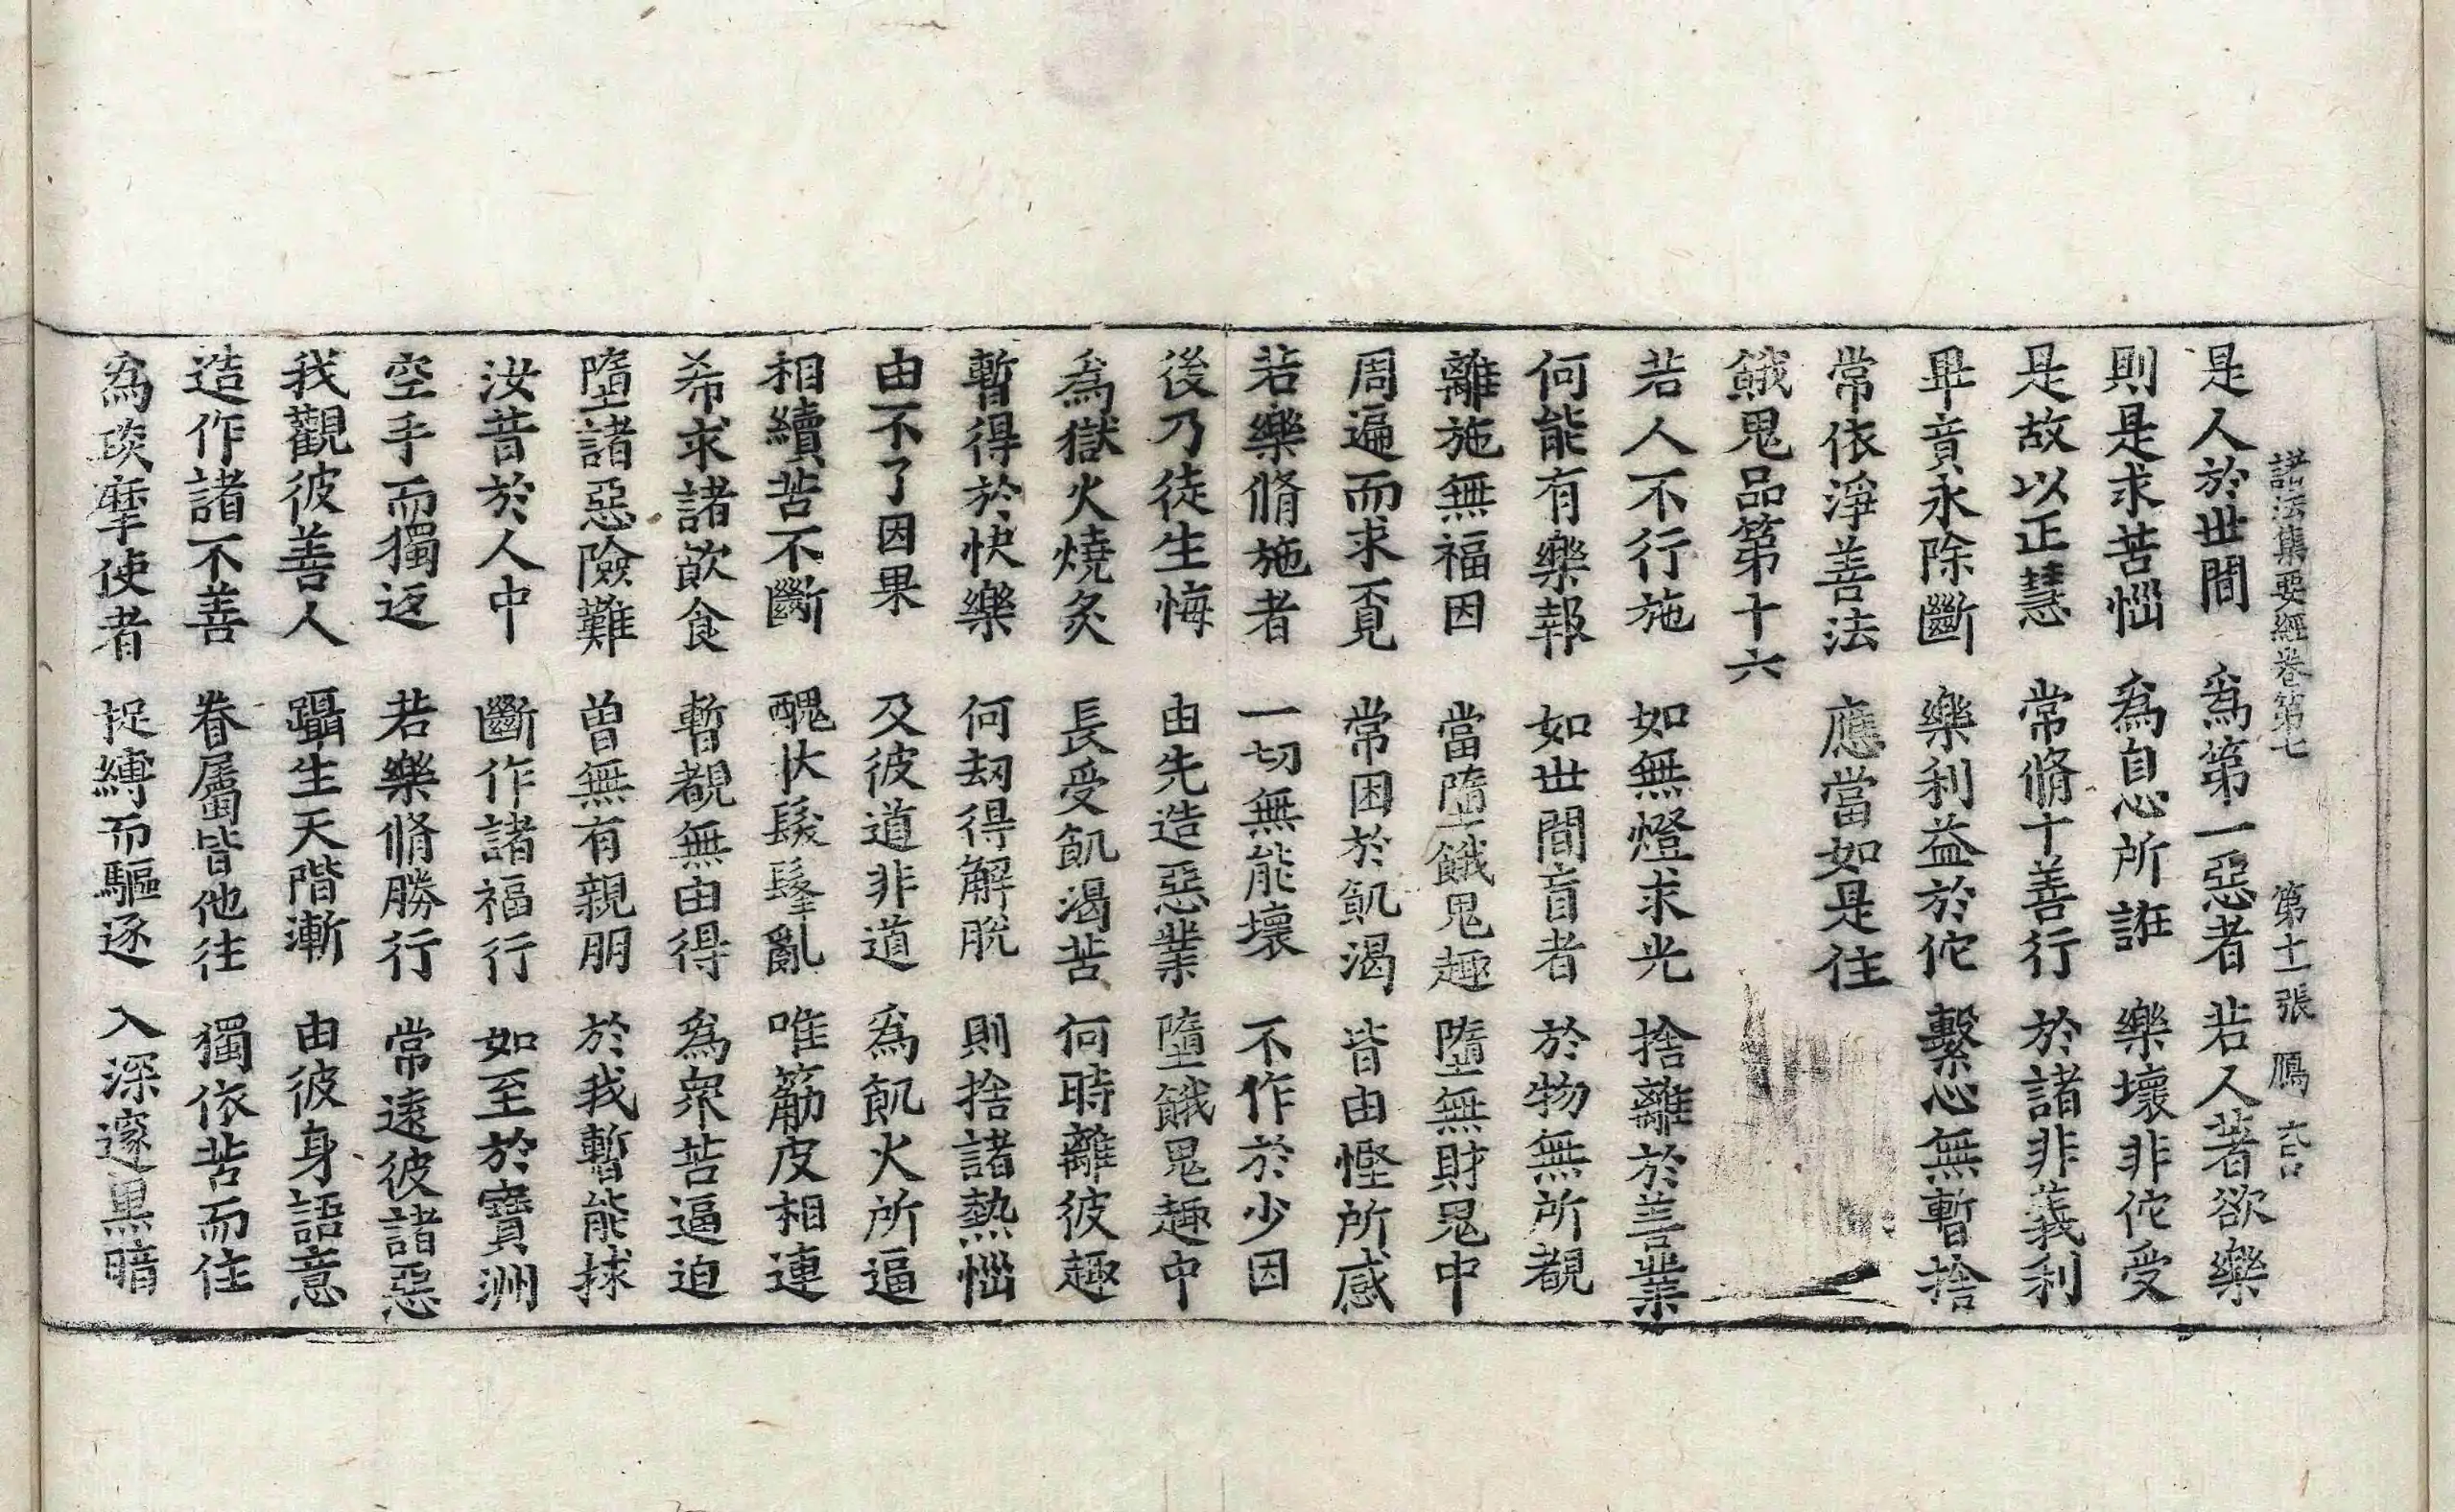 諸法集要經卷第七 第十一張 鴈
是人於世間 爲第一惡者 若人著欲樂
則是求苦惱 爲自心所誑 樂壞非佗受
是故以正慧 常脩十善行 於諸非義利
畢竟永除斷 樂利益於佗 繫心無暫捨
常依淨善法 應當如是住
餓鬼品第十六
若人不行施 如無燈求光 捨離於善業
何能有樂報 如世間盲者 於物無所覩
離施無福因 當墮餓鬼趣 墮無財鬼中
周遍而求覓 常困於飢渴 皆由慳所感
若樂脩施者 一切無能壞 不作於少因
後乃徒生悔 由先造惡業 墮餓鬼趣中
爲獄火燒炙 長受飢渴苦 何時離彼趣
暫得於快樂 何刼得解脫 則捨諸熱惱
由不了因果 及彼道非道 爲飢火所逼
相續苦不斷 醜狀髮髼亂 唯筋皮相連
希求諸飮食 暫覩無由得 爲衆苦逼迫
墮諸惡險難 曾無有親朋 於我暫能捄
汝昔於人中 斷作諸福行 如至於寶洲
空手而獨返 若樂脩勝行 常遠彼諸惡
我觀彼善人 躡生天階漸 由彼身語意
造作諸不善 眷屬皆他往 獨依苦而住
爲琰摩使者 捉縛而驅逐 入深邃黑暗